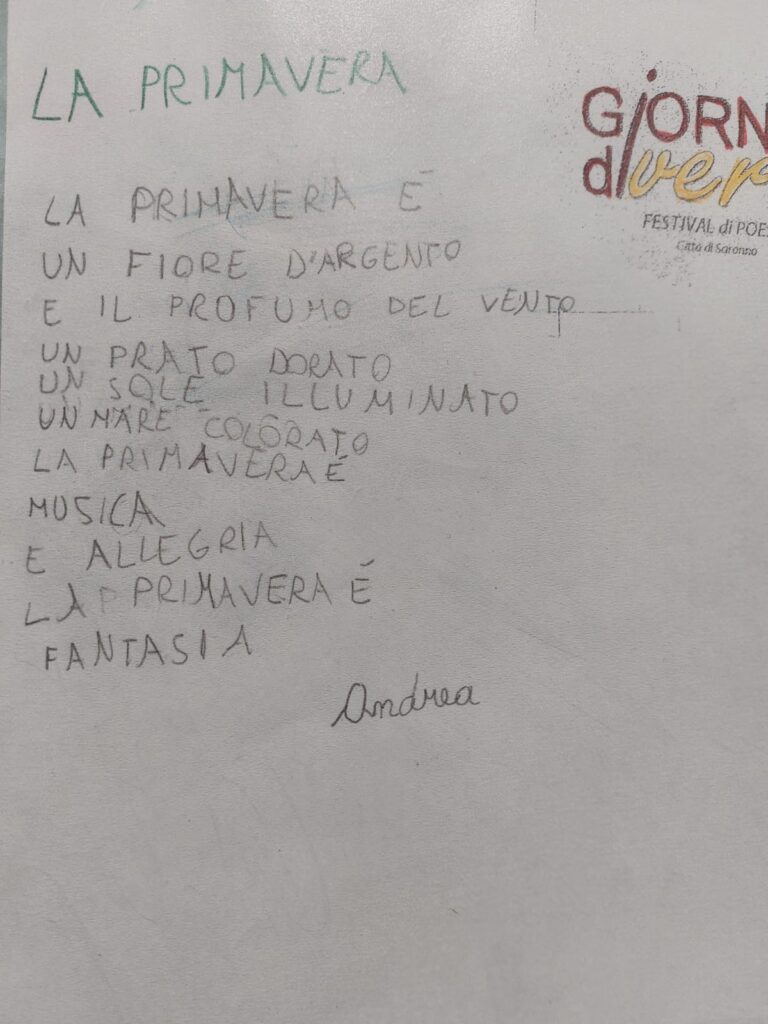 LA PRIMAVERA
GiORN
di ver
FESTIVAL di POES
Città di Saronno
LA PRIMAVERA É
UN FIORE D'ARGENTO
E IL PROFUMO DEL VENTO
UN PRATO DORATO
UN SOLE ILLUMINATO
UN MARE COLORATO
LA PRIMAVERA É
MUSICA
E ALLEGRIA
LA PRIMAVERA É
FANTASIA
Andrea